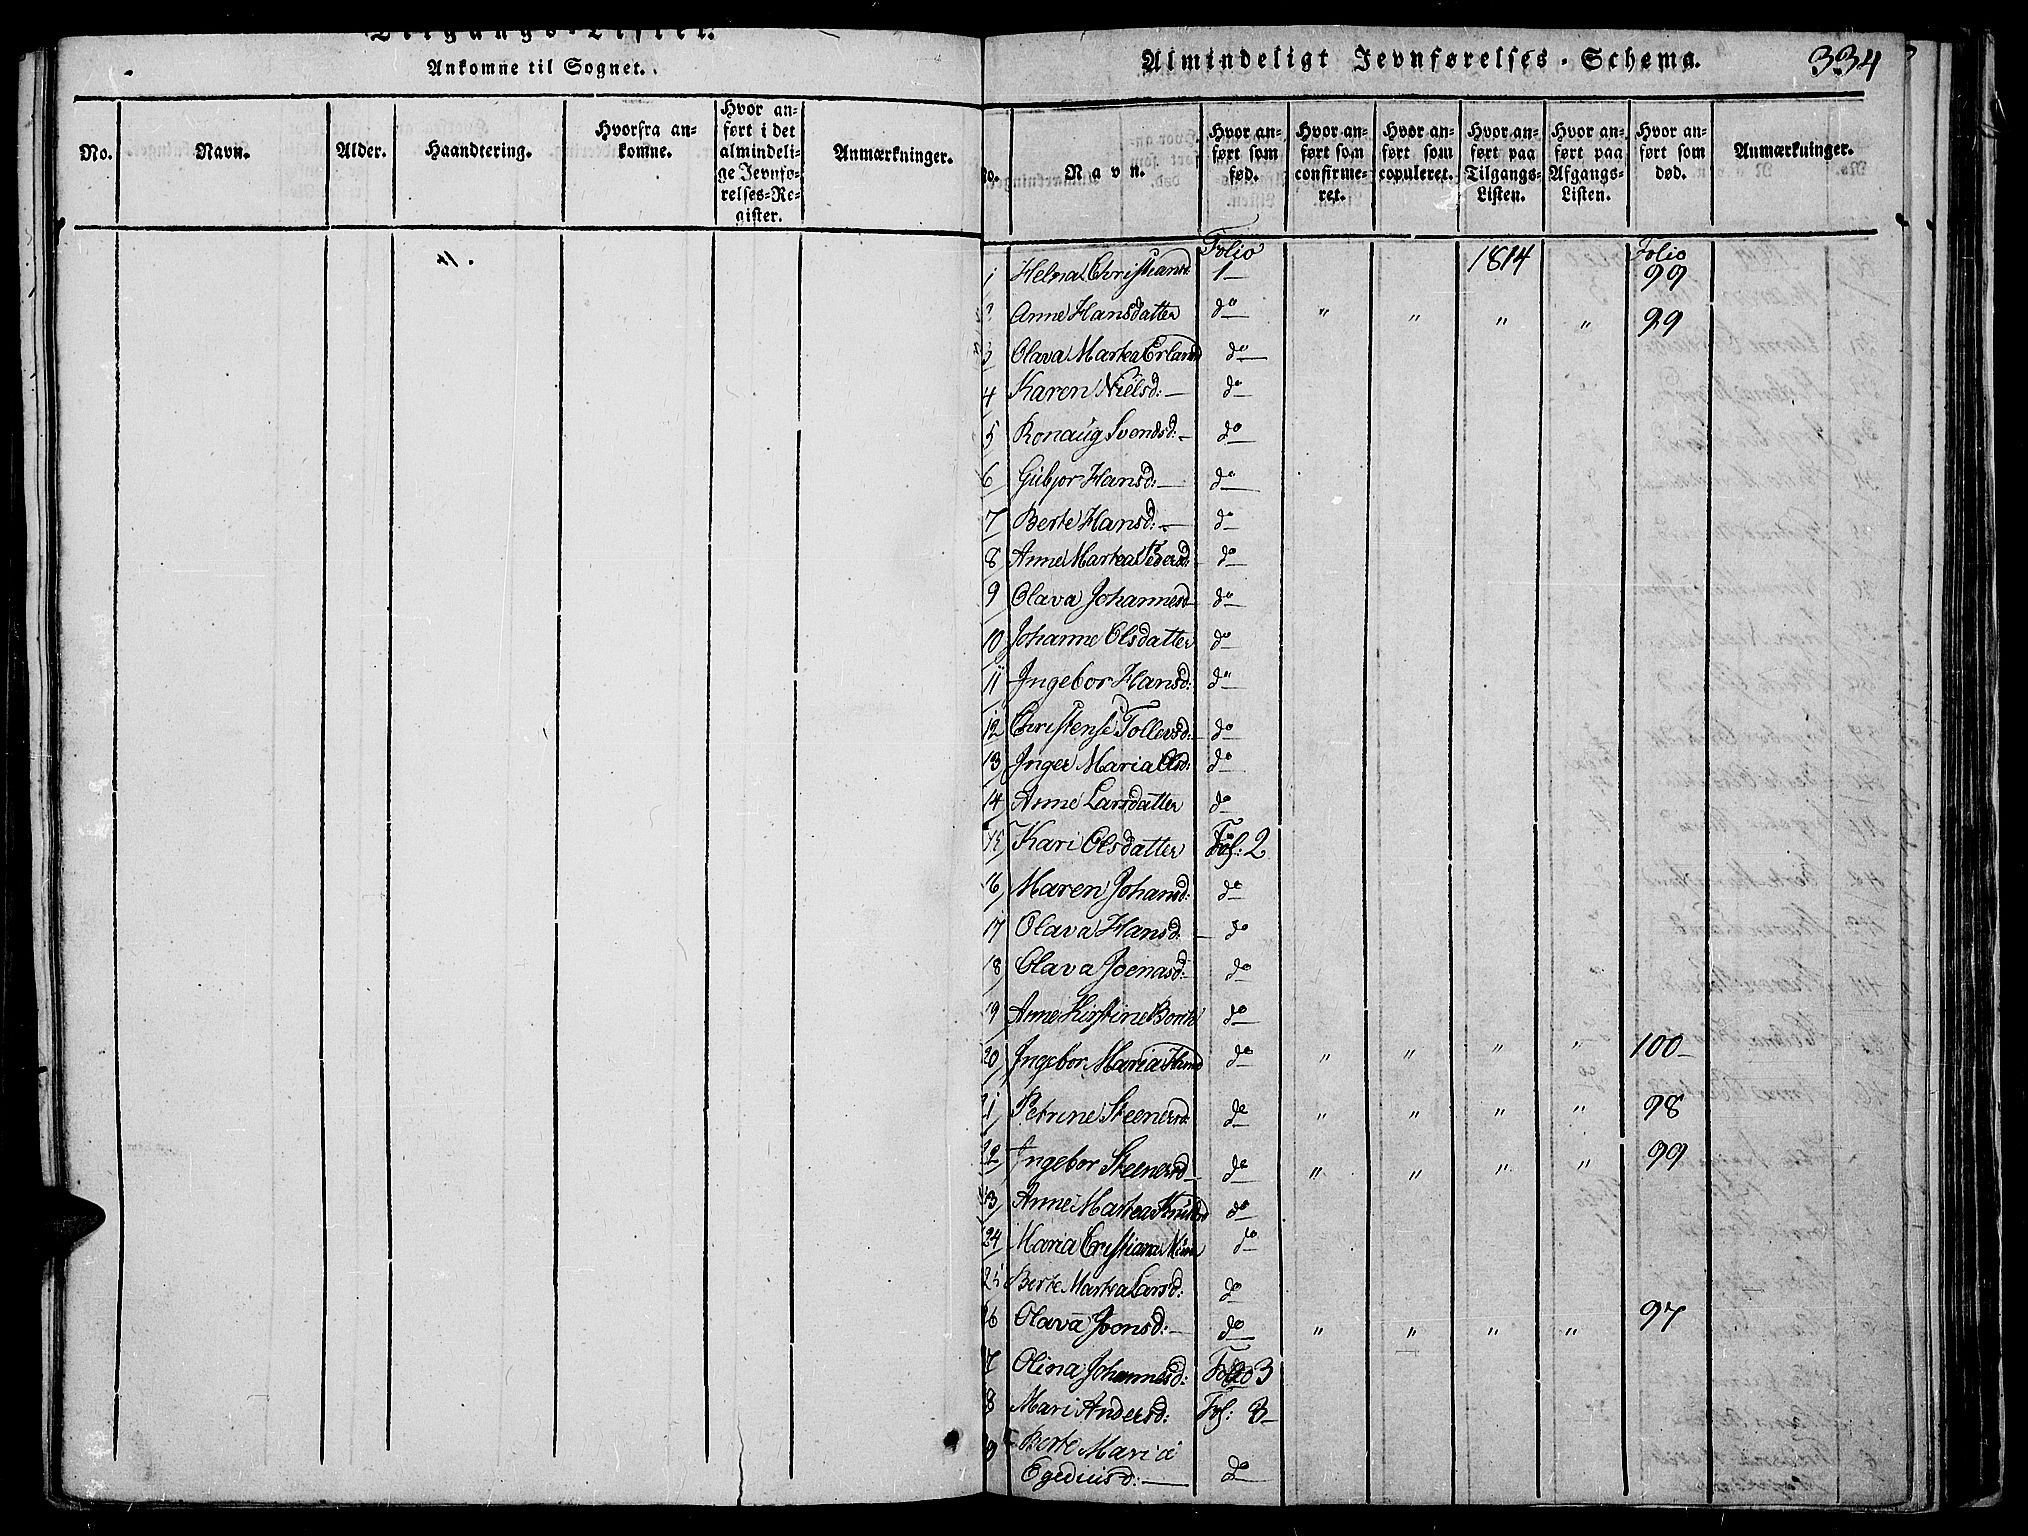 Tilgangs-Lister.
Ankomne til Sognet.
No. Navn. Alder. Haandtering. Hvorfra an-komne. Hvor an-ført i det almindeli-ge Jevnfø-relses-Re-gister. Anmærkninger.
Almindeligt Jevnførelses-Schema. 334
No. Navn. Hvor an-ført som fød. Hvor an-ført som confirme-ret. Hvor an-ført som copuleret. Hvor an-ført paa Tilgangs-Listen. Hvor an-ført paa Afgangs-Listen. Hvor an-ført som død. Anmærkninger.
Folio 1814 Folio
1 Helna Christiansd 1 99
2 Anne Hansdatter do " " " " 99
3 Olava Martea Erlandsd do
4 Karen Nielsd: do
5 Ronaug Svendsd: do
6 Gubjor Hansd: do
7 Berte Hansd: do
8 Anne Martea Pedersd: do
9 Olava Johannesd do
10 Johanne Olsdatter do
11 Ingebor Hansd: do
12 Christense Tollevsd: do
13 Inger Maria Olsd: do
14 Anne Larsdatter do
15 Kari Olsdatter Fol: 2
16 Maren Johansd: do
17 Olava Hansd: do
18 Olava Joenasd: do
19 Anne Kirstine do
20 Ingebor Maria do " " " " 100
21 Petrine Steenersd: do " " " " 98
22 Ingebor Steenersd do " " " " 99
23 Anne Martea Knudsd do
24 Maria Cristiana do
25 Berte Martea Larsd: do
26 Olava Joonsd: do " " " " 97
7 Olina Johannesd: Folio 3
8 Mari Andersd: Fol: 3
9 Berte Maria
Egediusd: do